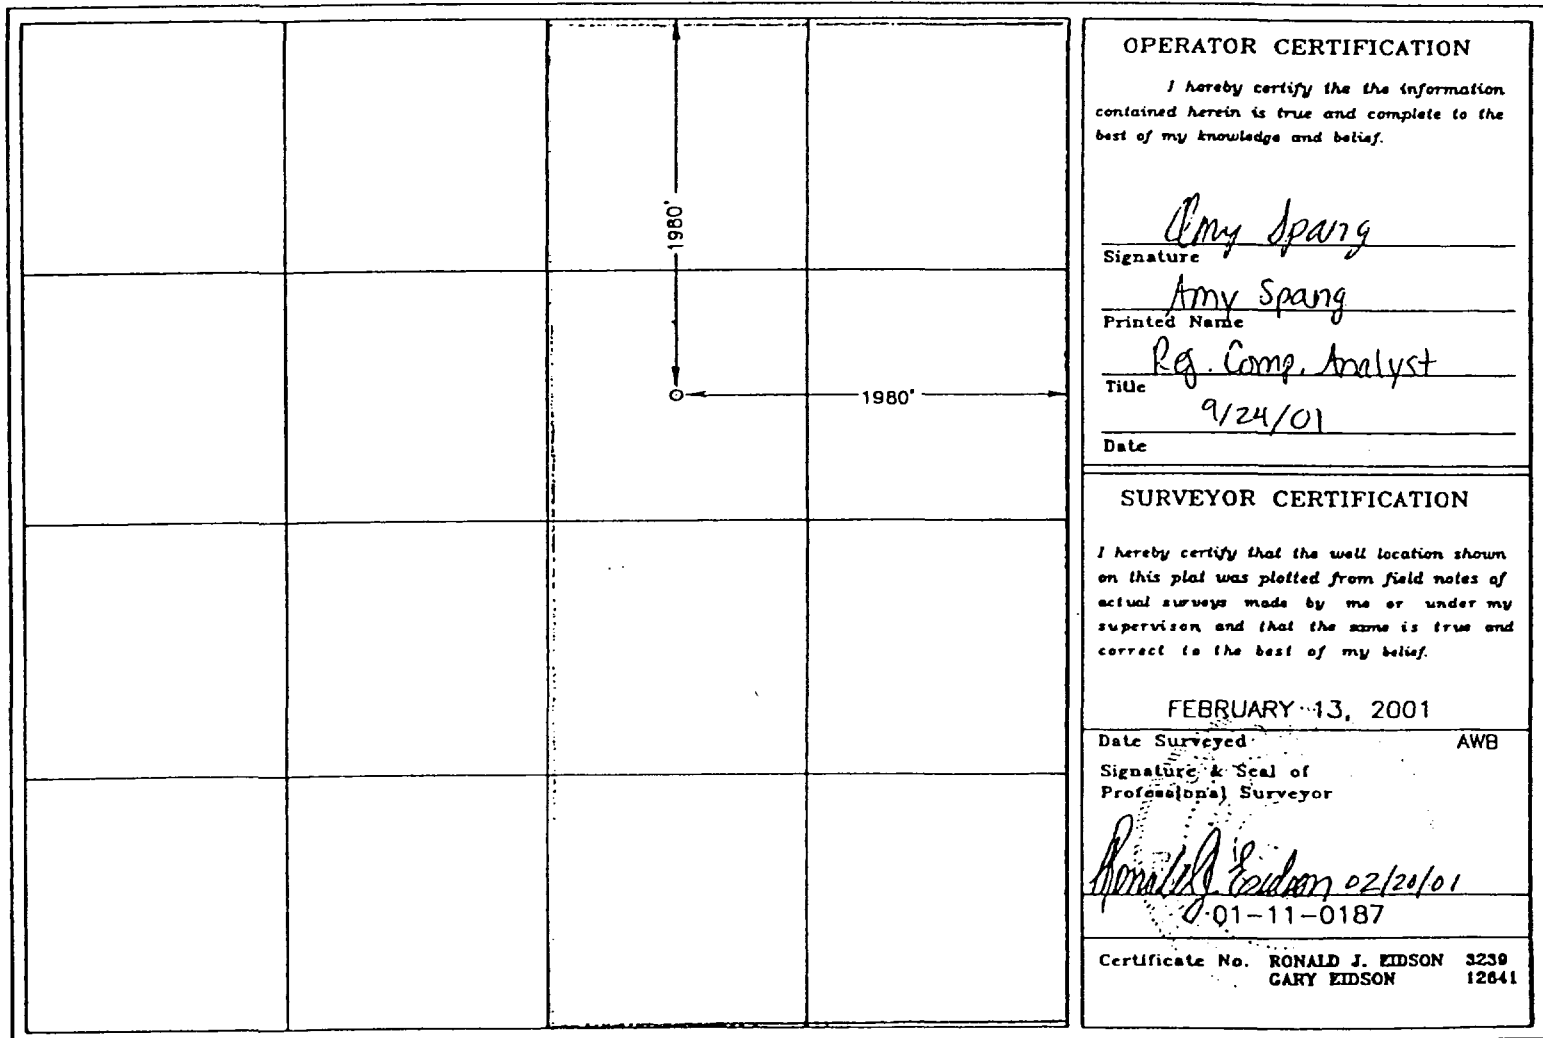 1980'
1980'
OPERATOR CERTIFICATION
I hereby certify the the information
contained herein is true and complete to the
best of my knowledge and belief.
Amy Spang
Signature
Amy Spang
Printed Name
Reg. Comp. Analyst
Title
9/24/01
Date
SURVEYOR CERTIFICATION
I hereby certify that the well location shown
on this plat was plotted from field notes of
actual surveys made by me or under my
supervison and that the same is true and
correct to the best of my belief.
FEBRUARY 13, 2001
Date Surveyed AWB
Signature & Seal of
Professional Surveyor
Ronald J. Eidson 02/20/01
01-11-0187
Certificate No. RONALD J. EIDSON 3239
GARY EIDSON 12641